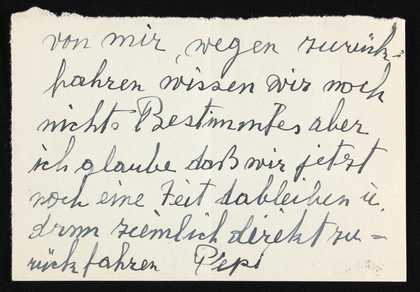 von mir, wegen zurück-
fahren wissen wir noch
nichts Bestimmtes aber
ich glaube daß wir jetzt
noch eine Zeit dableiben u.
dann ziemlich direkt zu-
rückfahren Pepi